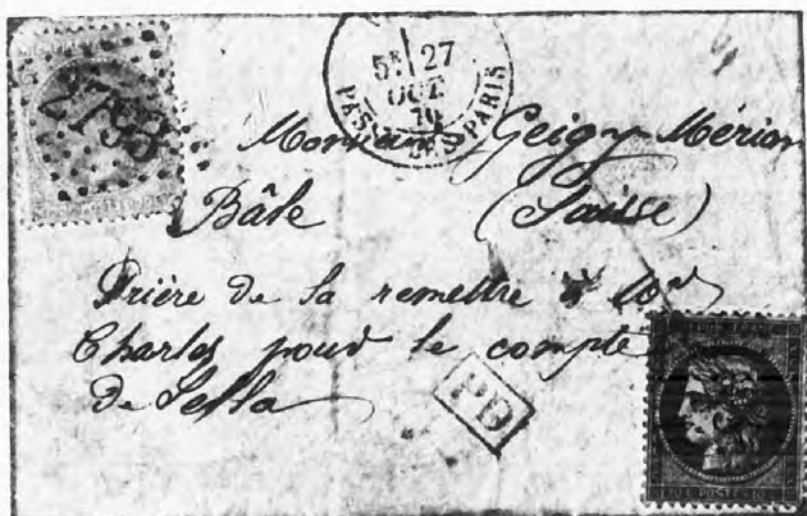 2793
5E 27
OCT.
70
PASSY-LES-PARIS
Monsieur Geigy-Mérian
Bâle (Suisse)
Prière de la remettre à
Charles pour le compte
de Sella
PD
10 C POSTES 10